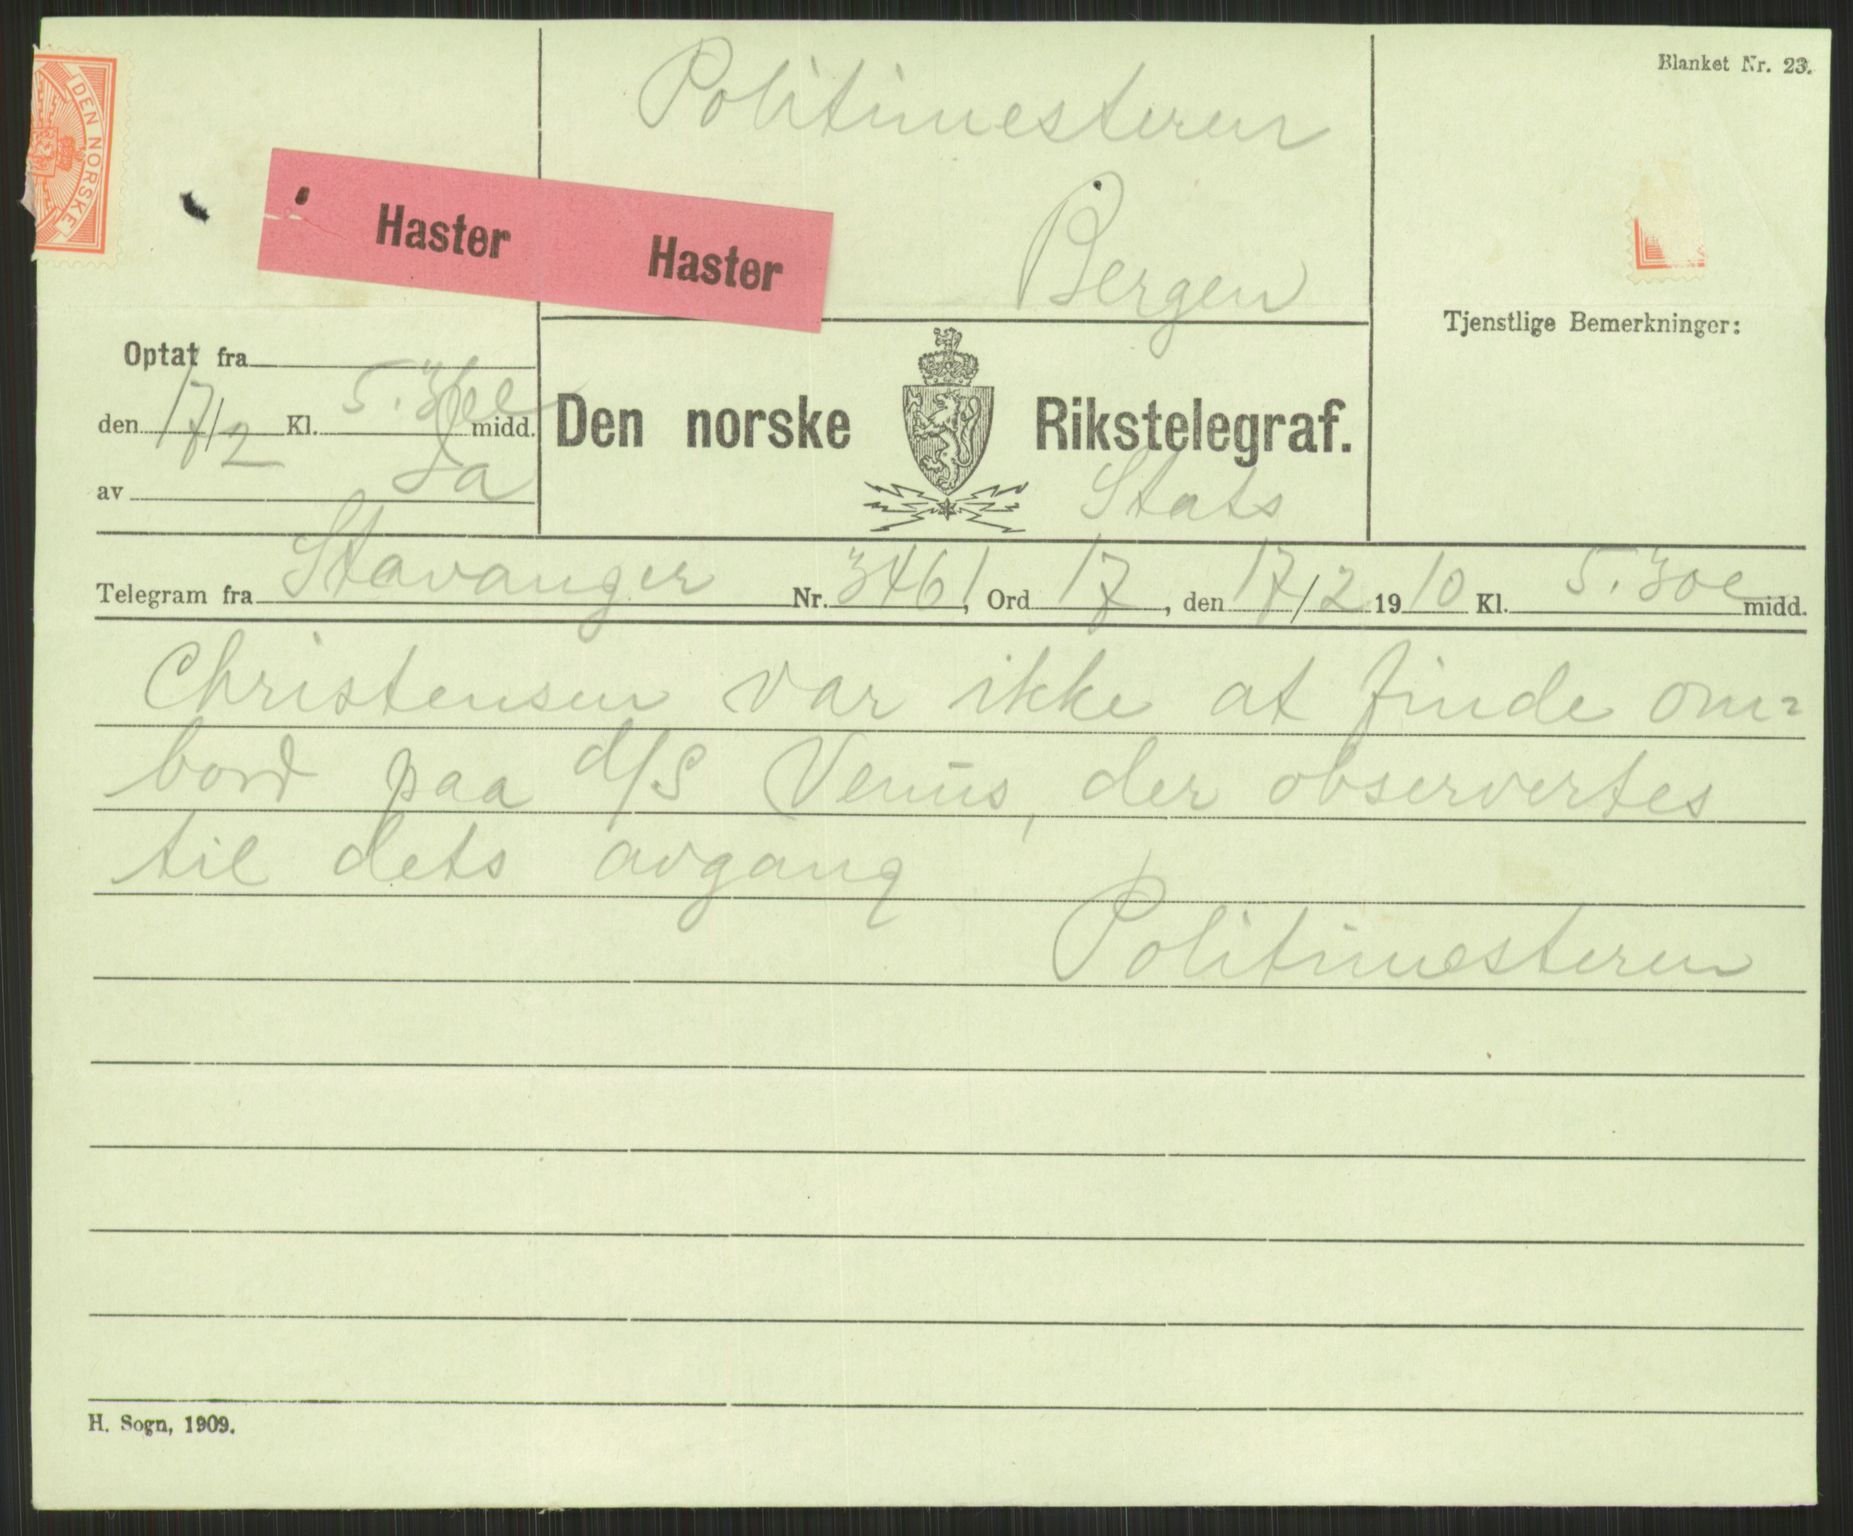 Blanket Nr. 23.
Politimesteren
Bergen
DEN NORSKE
Haster Haster
Tjenstlige Bemerkninger:
Optat fra
den 17/2 Kl. 5.30e midd.
av
Den norske Rikstelegraf.
Stats
Telegram fra Stavanger Nr. 3461, Ord 17, den 17/2 1910 Kl. 5.30e midd.
Christensen var ikke at finde om=
bord paa d/s Venus, der observertes
til dets avgang
Politimesteren
H. Sogn, 1909.